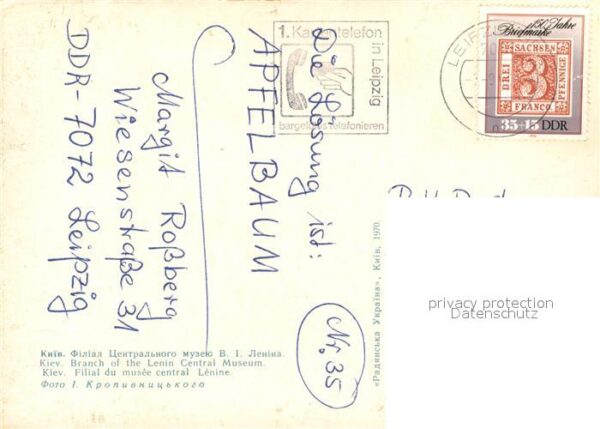 1. Kartentelefon
in Leipzig
bargeldlos telefonieren
LEIPZIG
150 Jahre
Briefmarke
SACHSEN
DREI
3
PFENNIGE
FRANCO
35+15 DDR
Die Lösung ist:
APFELBAUM
Margit Roßberg
Wiesenstraße 31
DDR-7072 Leipzig
Nr. 35
«Радянська Україна», Київ, 1970.
privacy protection
Datenschutz
Київ. Філіал Центрального музею В. І. Леніна.
Kiev. Branch of the Lenin Central Museum.
Kiev. Filial du musée central Lénine.
Фото І. Кропивницького